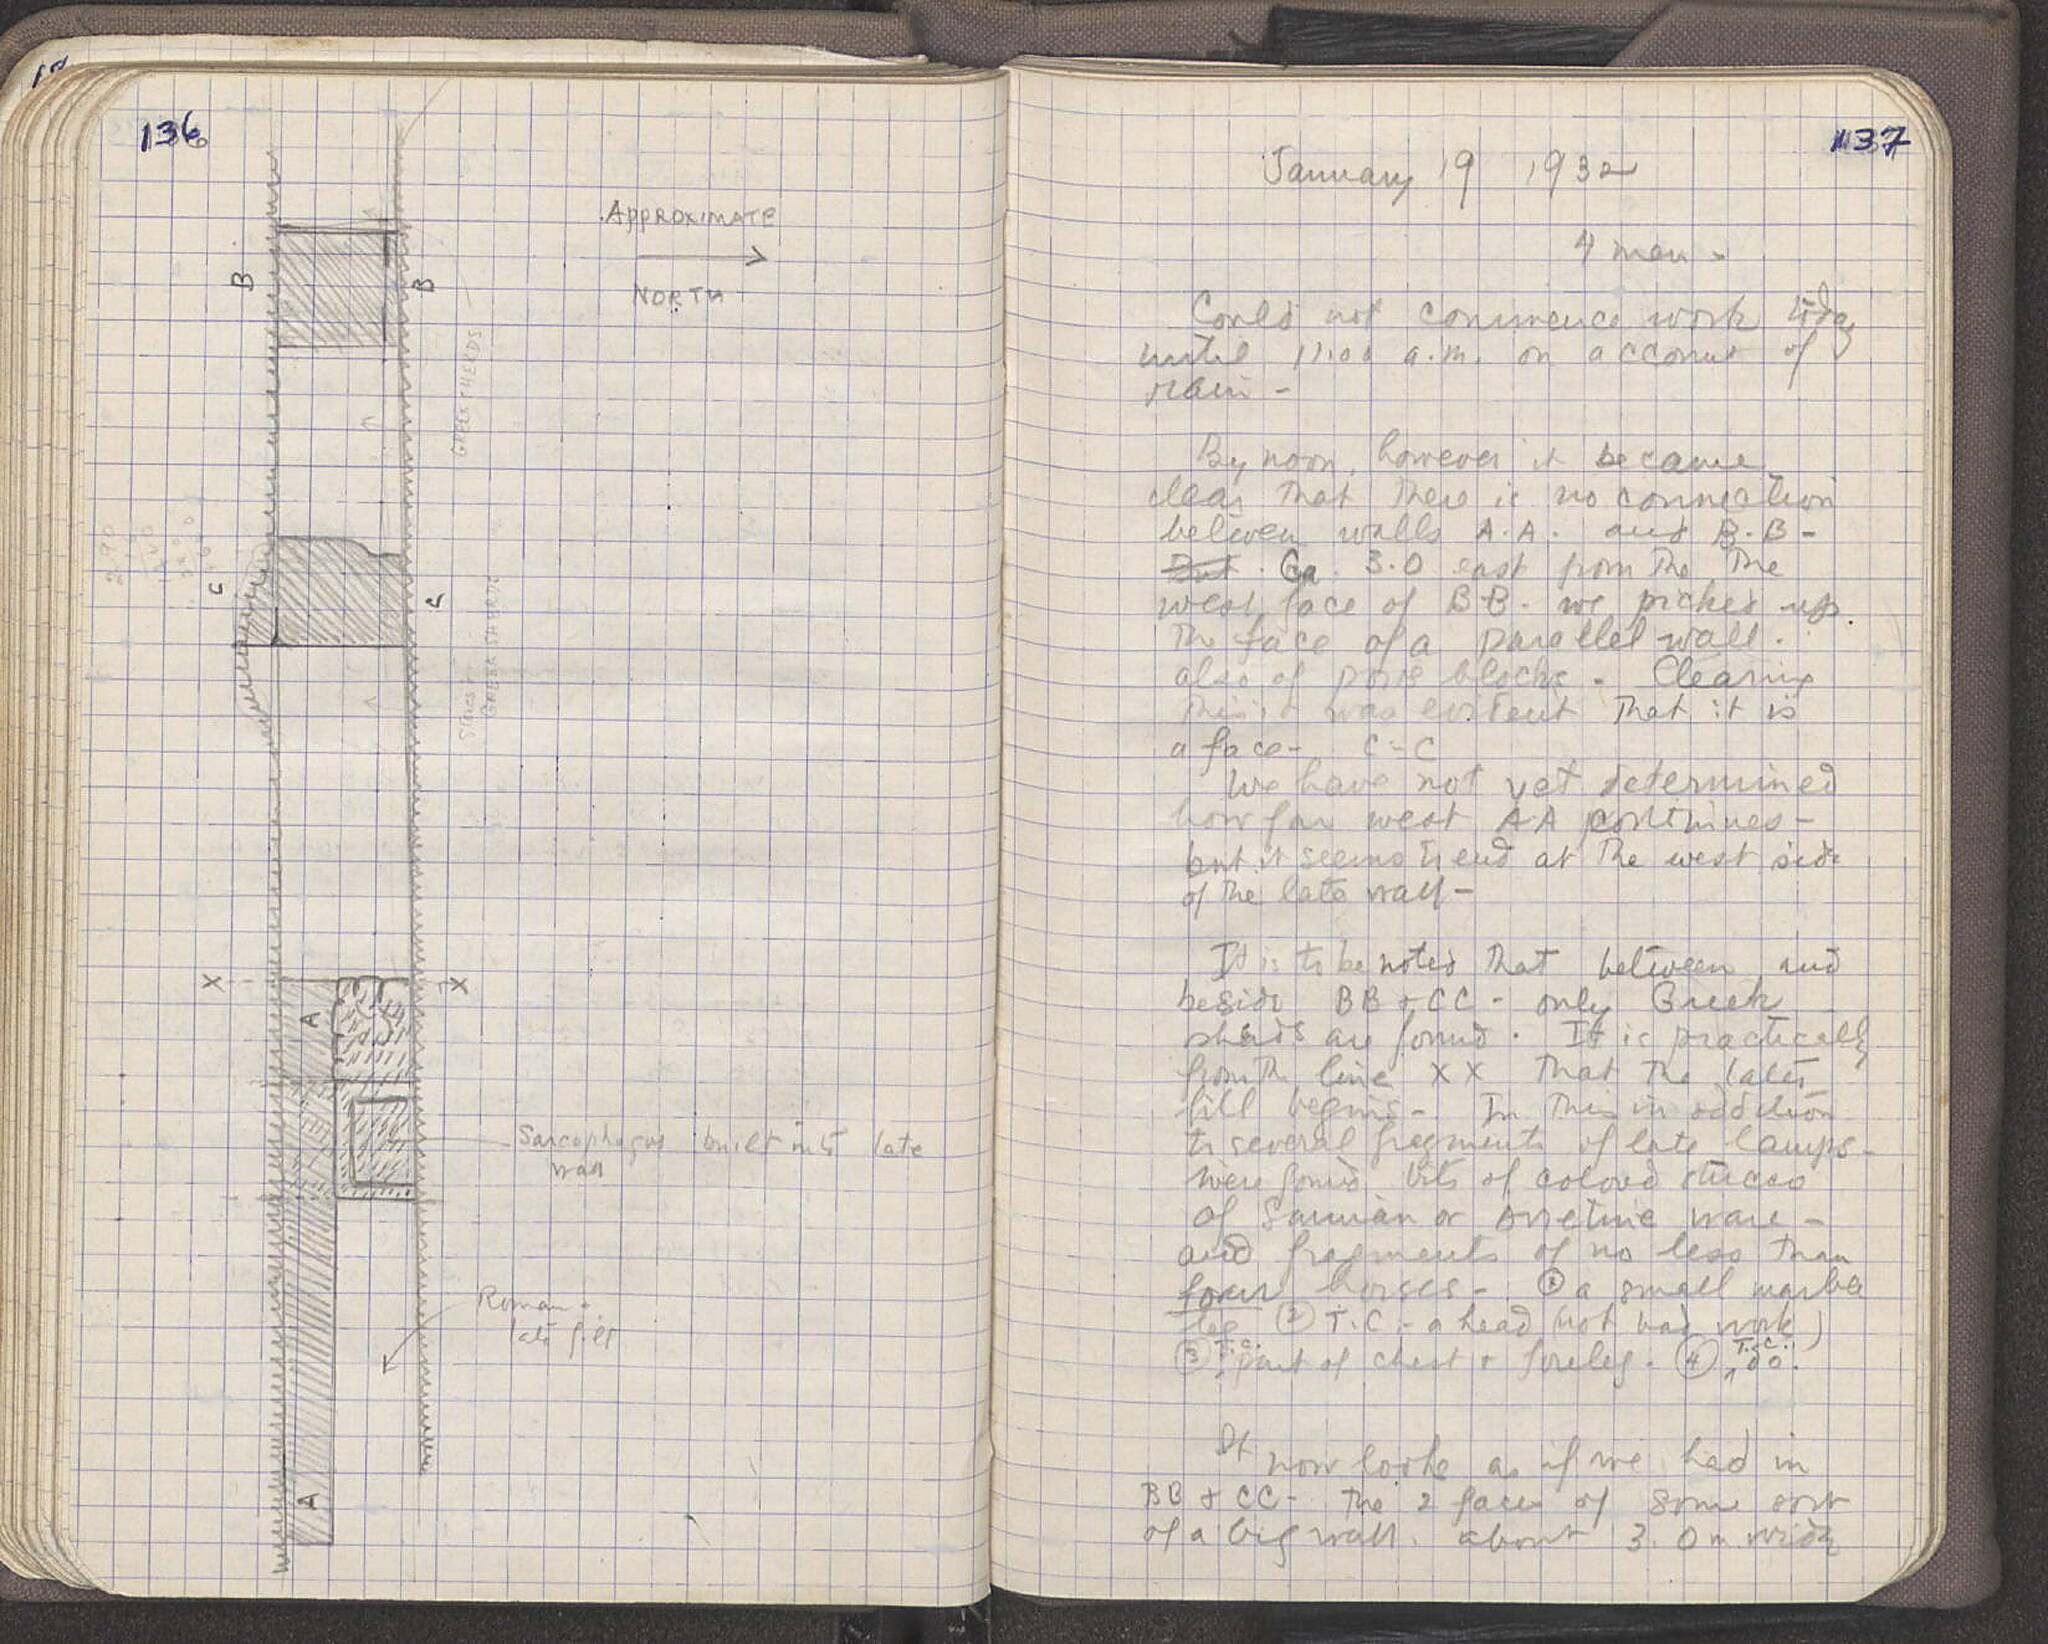 136
B
B
APPROXIMATE
NORTH
GREEK SHERDS
C
C
GREEK SHERDS
X
X
A
Sarcophagus built into late
wall
Roman -
late fill
A
137
January 19 1932
4 men -
Could not commence work today
until 11.00 a.m. on account of
rain -
By noon, however it became
clear that there is no connection
between walls A.A. and B.B -
But. Ca. 3.0 east from the the
west face of BB. we picked up
the face of a parallel wall.
also of poros blocks - Clearing
this it was evident that it is
a face - C-C
We have not yet determined
how far west AA continues -
but it seems to end at the west side
of the late wall -
It is to be noted that between and
beside BB + CC - only Greek
sherds are found. It is practically
from the line XX that the later
fill begins - In this in addition
to several fragments of late lamps -
were found bits of colored stucco
of Samian or Arretine ware -
and fragments of no less than
four horses - ① a small marble
leg ② T.C. - a head (not bad work)
③ T.C. part of chest + foreleg. ④ T.C. do.
It now looks as if we had in
BB + CC - the 2 faces of some sort
of a big wall. about 3.0 m wide